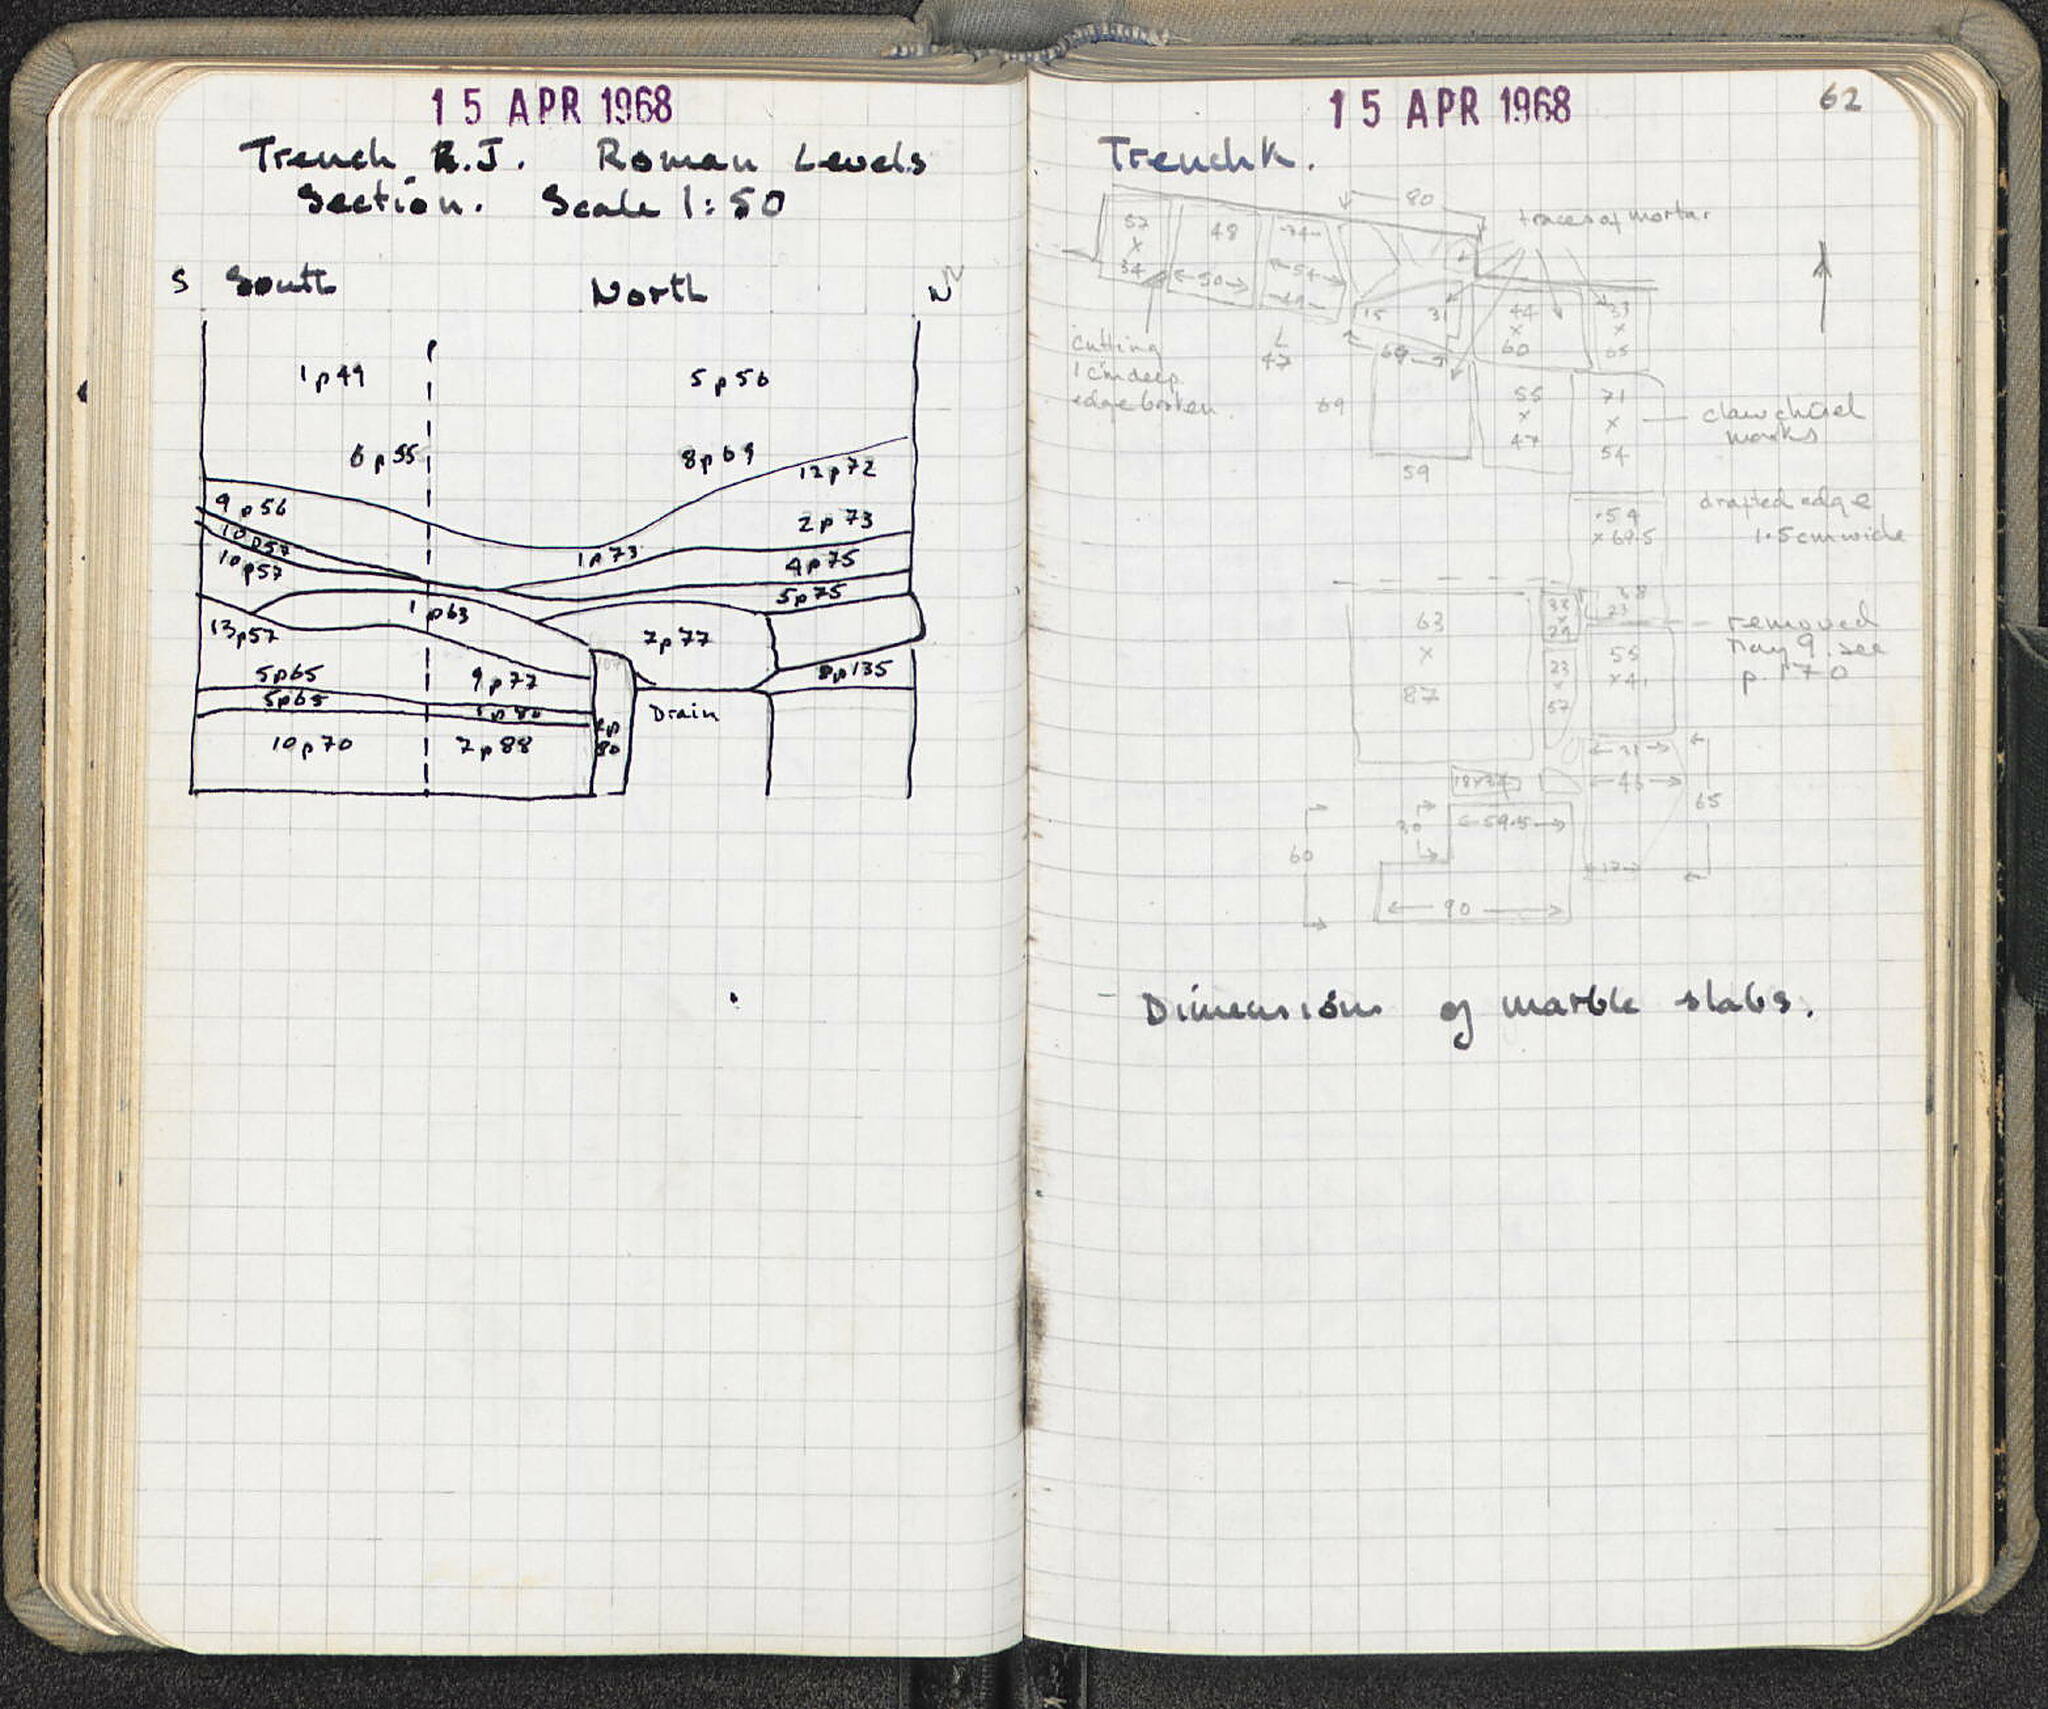 15 APR 1968
Trench R.J. Roman Levels
Section. Scale 1:50
S South North N
1p49 5p56
6p55 8p69 12p72
9p56 2p73
10p57 1p73 4p75
10p57 5p75
1p63
13p57 7p77
5p65 9p77 8p135
5p65 1p80 Drain
10p70 7p88 2p
80
15 APR 1968
62
Trench K.
80
traces of mortar
57
x
34
48
50
74
54
49
15 31
44
x
60
33
x
65
cutting
1 cm deep
edge broken.
L
47
69
69
59
55
x
47
71
x
54
claw chisel
marks
54
x 69.5
drafted edge
1.5cm wide
63
x
87
33
x
29
38
23
23
x
57
55
x 41
removed
May 9. see
p. 170
31
46
65
18x24
59.5
30
60
17
90
- Dimensions of marble slabs.